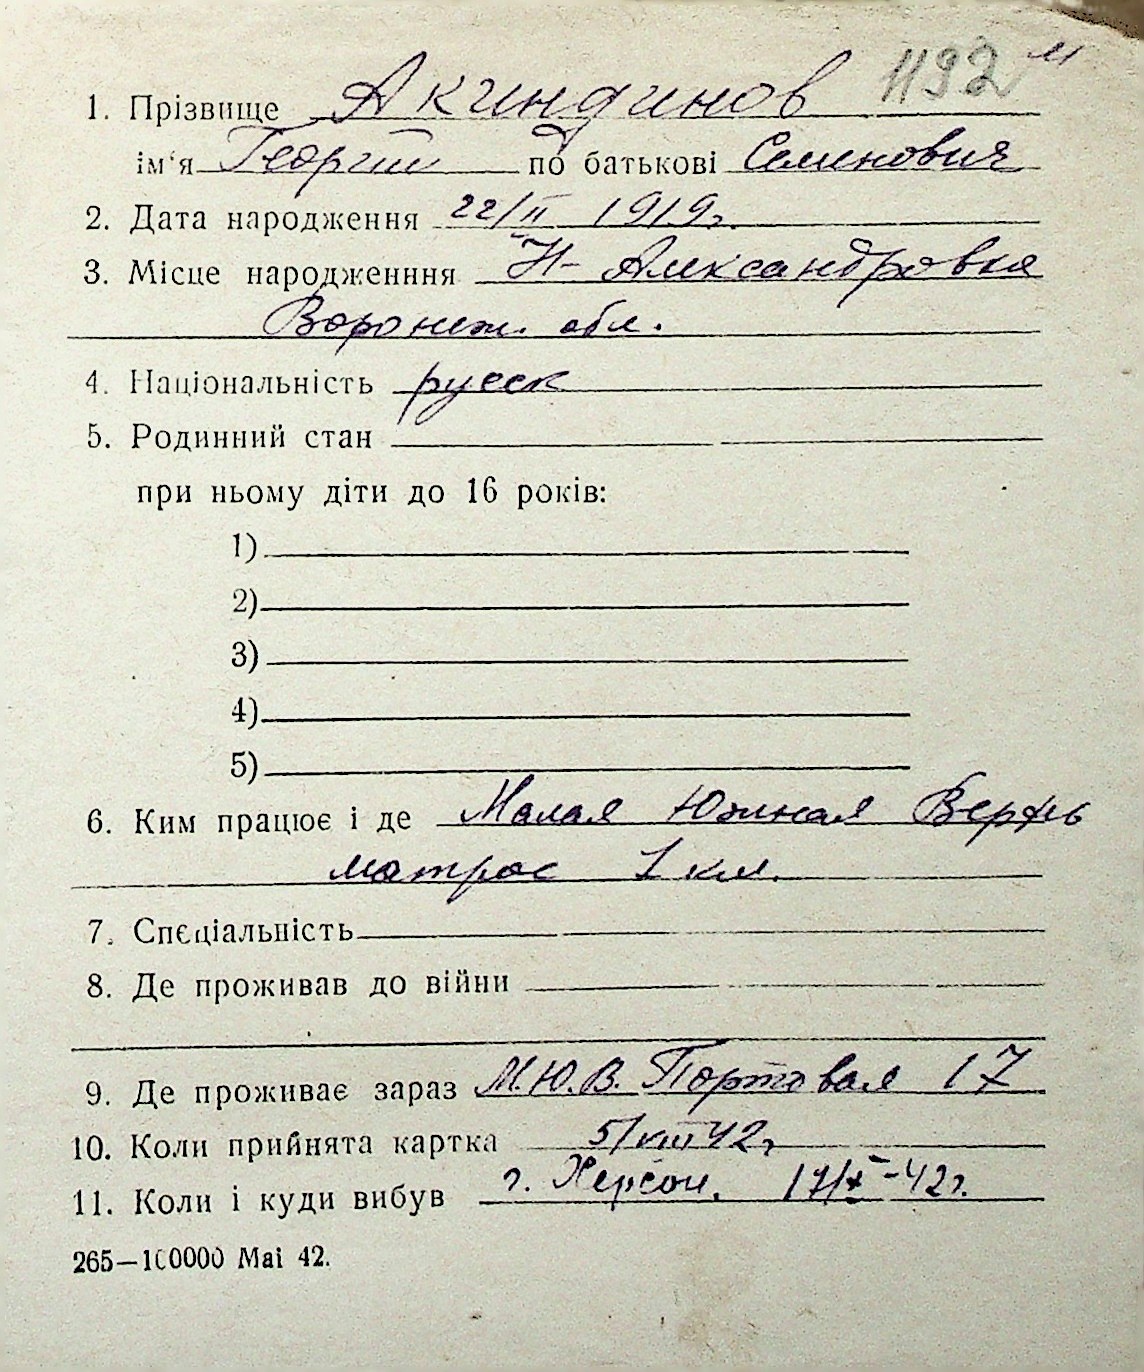 1192 м
1. Прізвище Акиндинов
ім‘я Георгий по батькові Семенович
2. Дата народження 22/II 1919г.
3. Місце народженння Н-Александровка
Воронеж. обл.
4. Національність русск
5. Родинний стан
при ньому діти до 16 років:
1)
2)
3)
4)
5)
6. Ким працює і де Малая Южная Верфь
матрос 1 кл.
7. Спєціальність
8. Де проживав до війни
9. Де проживає зараз М.Ю.В. Портовая 17
10. Коли прийнята картка 5/VIII 42г
11. Коли і куди вибув г. Херсон. 17/X-42г.
265—100000 Mai 42.